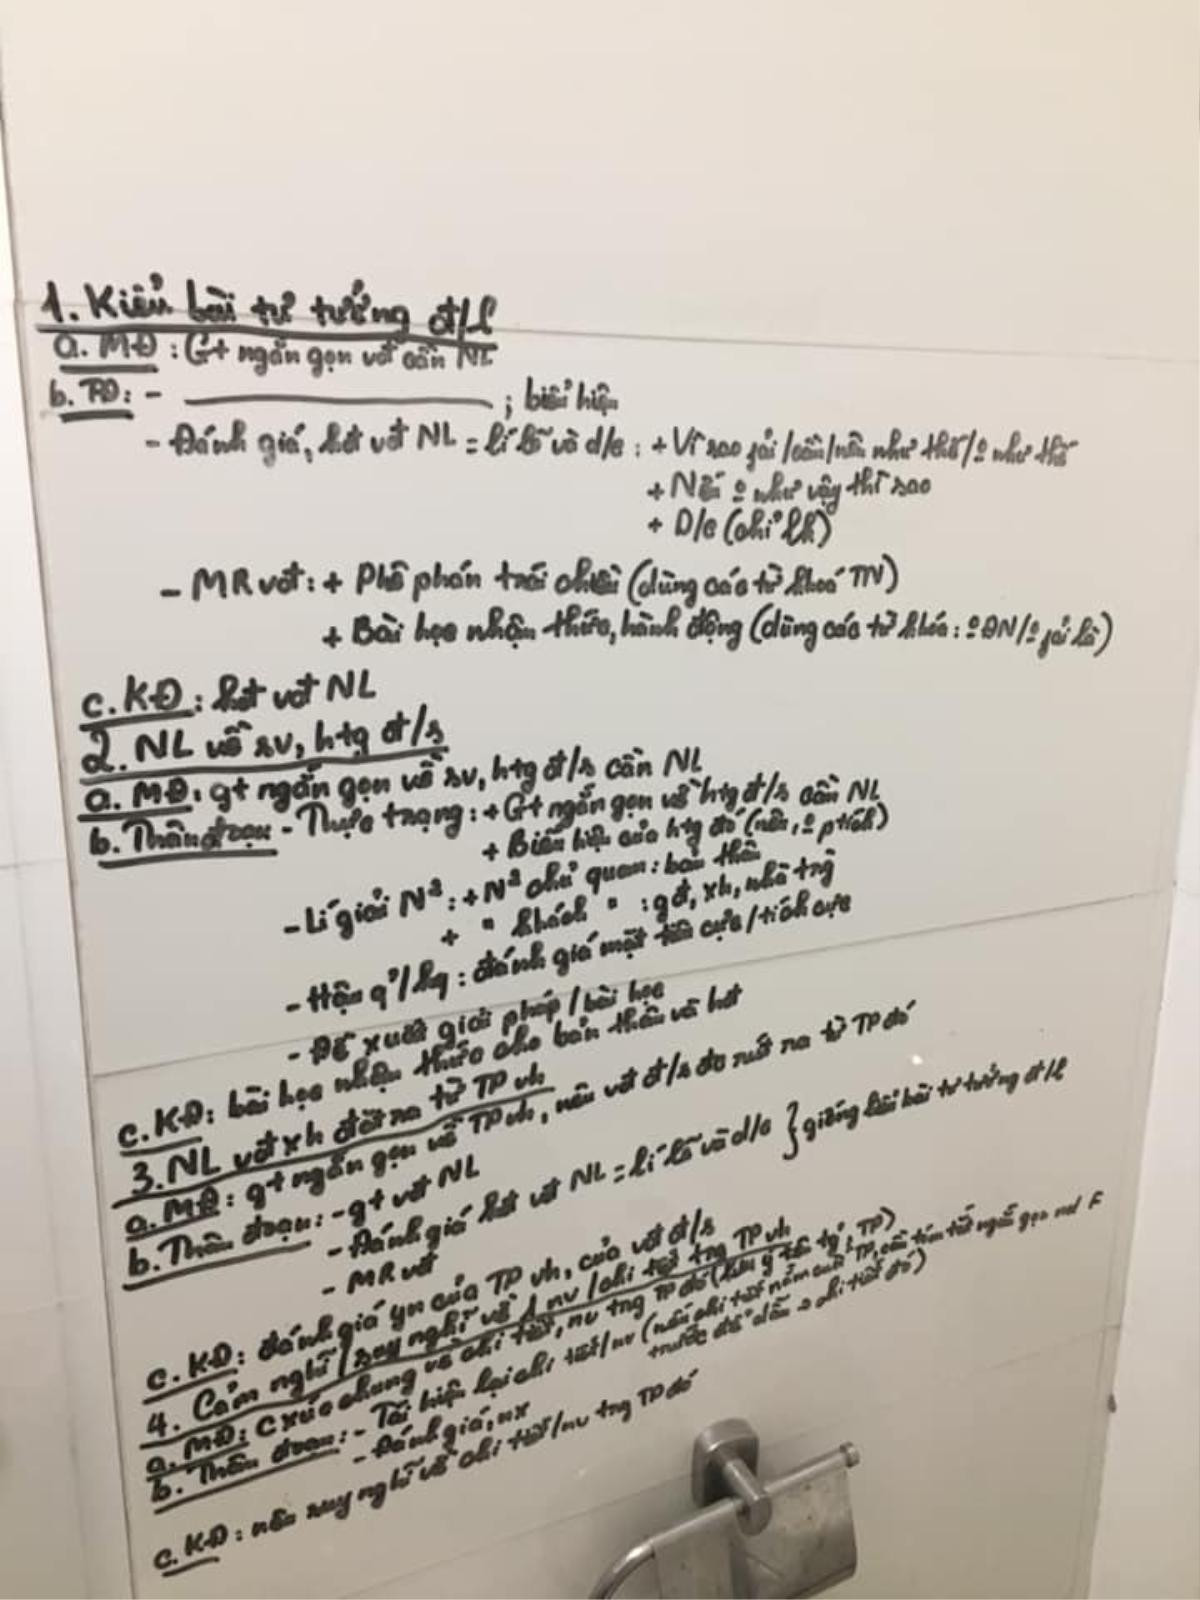 1. Kiểu bài tư tưởng đ/l
a. MĐ: Gt ngắn gọn vđ cần NL
b. TĐ: - ; biểu hiện
- Đánh giá, kđ vđ NL = lí lẽ và d/c: + Vì sao fải/cần/nên như thế/o như thế
+ Nếu o như vậy thì sao
+ D/c (chỉ lk)
- MR vđ: + Phê phán trái chiều (dùng các từ khoá TN)
+ Bài học nhận thức, hành động (dùng các từ khóa: o ĐN/o fải là)
c. KĐ: kđ vđ NL
2. NL về sv, htg đ/s
a. MĐ: gt ngắn gọn về sv, htg đ/s cần NL
b. Thân đoạn - Thực trạng: + Gt ngắn gọn về htg đ/s cần NL
+ Biểu hiện của htg đó (nêu, o ptích)
- Lí giải N²: + N² chủ quan: bản thân
+ " khách " : gđ, xh, nhà trg
- Hậu q'/kq: đánh giá mặt tiêu cực/tích cực
- Đề xuất giải pháp/bài học
c. KĐ: bài học nhận thức cho bản thân và
3. NL vđ xh đặt ra từ TP vh
a. MĐ: gt ngắn gọn về TP vh, nêu vđ đ/s đc rút ra từ TP đó
b. Thân đoạn: - gt vđ NL
- Đánh giá kđ vđ NL = lí lẽ và d/c } giống bài tư tưởng đ/l
- MR vđ
c. KĐ: đánh giá yn của TP vh, của vđ đ/s
4. Cảm nghĩ/suy nghĩ về 1 nv/chi tiết tng TP vh
a. MĐ: C xúc chung về chi tiết, nv tng TP đó (lưu ý tên tg', TP)
b. Thân đoạn: - Tái hiện lại chi tiết/nv (nếu chi tiết nằm cuối TP, cần tóm tắt ngắn gọn nd F
trước để dẫn → chi tiết đó)
- Đánh giá, nx
c. KĐ: nêu suy nghĩ về chi tiết/nv tng TP đó